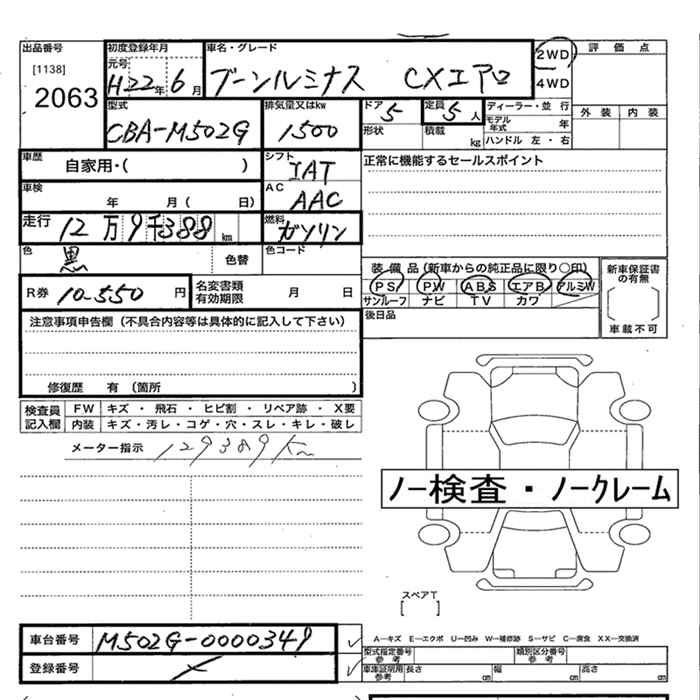 出品番号 初度登録年月 車名・グレード 2WD 評価点
[1138] 元号
2063 H22年6月 ブーンルミナス CXエアロ 4WD
型式 排気量又はkw ドア 5 定員 5人 ディーラー・並行 外装 内装
CBA-M502G 1500 形状 積載 kg モデル年式 年
ハンドル 左・右
車歴 自家用・( ) シフト IAT 正常に機能するセールスポイント
車検 年 月( 日) AC AAC
走行 12万9千388km 燃料 ガソリン
色 黒 色替 色コード
装備品(新車からの純正品に限り○印) 新車保証書の有無
R券 10-550円 名変書類有効期限 月 日 PS PW ABS エアB アルミW
サンルーフ ナビ TV カワ
注意事項申告欄(不具合内容等は具体的に記入して下さい) 後日品 車載不可
修復歴 有(箇所 )
検査員記入欄 FW キズ・飛石・ヒビ割・リペア跡・X要
内装 キズ・汚レ・コゲ・穴・スレ・キレ・破レ
メーター指示 129389Km
ノー検査・ノークレーム
スペアT
[ ]
車台番号 M502G-0000349
A―キズ E―エクボ U―凹み W―補修跡 S―サビ C―腐食 XX―交換済
型式指定番号 参考 類別区分番号 参考
登録番号 車庫証明用 参考 長さ cm 幅 cm 高さ cm